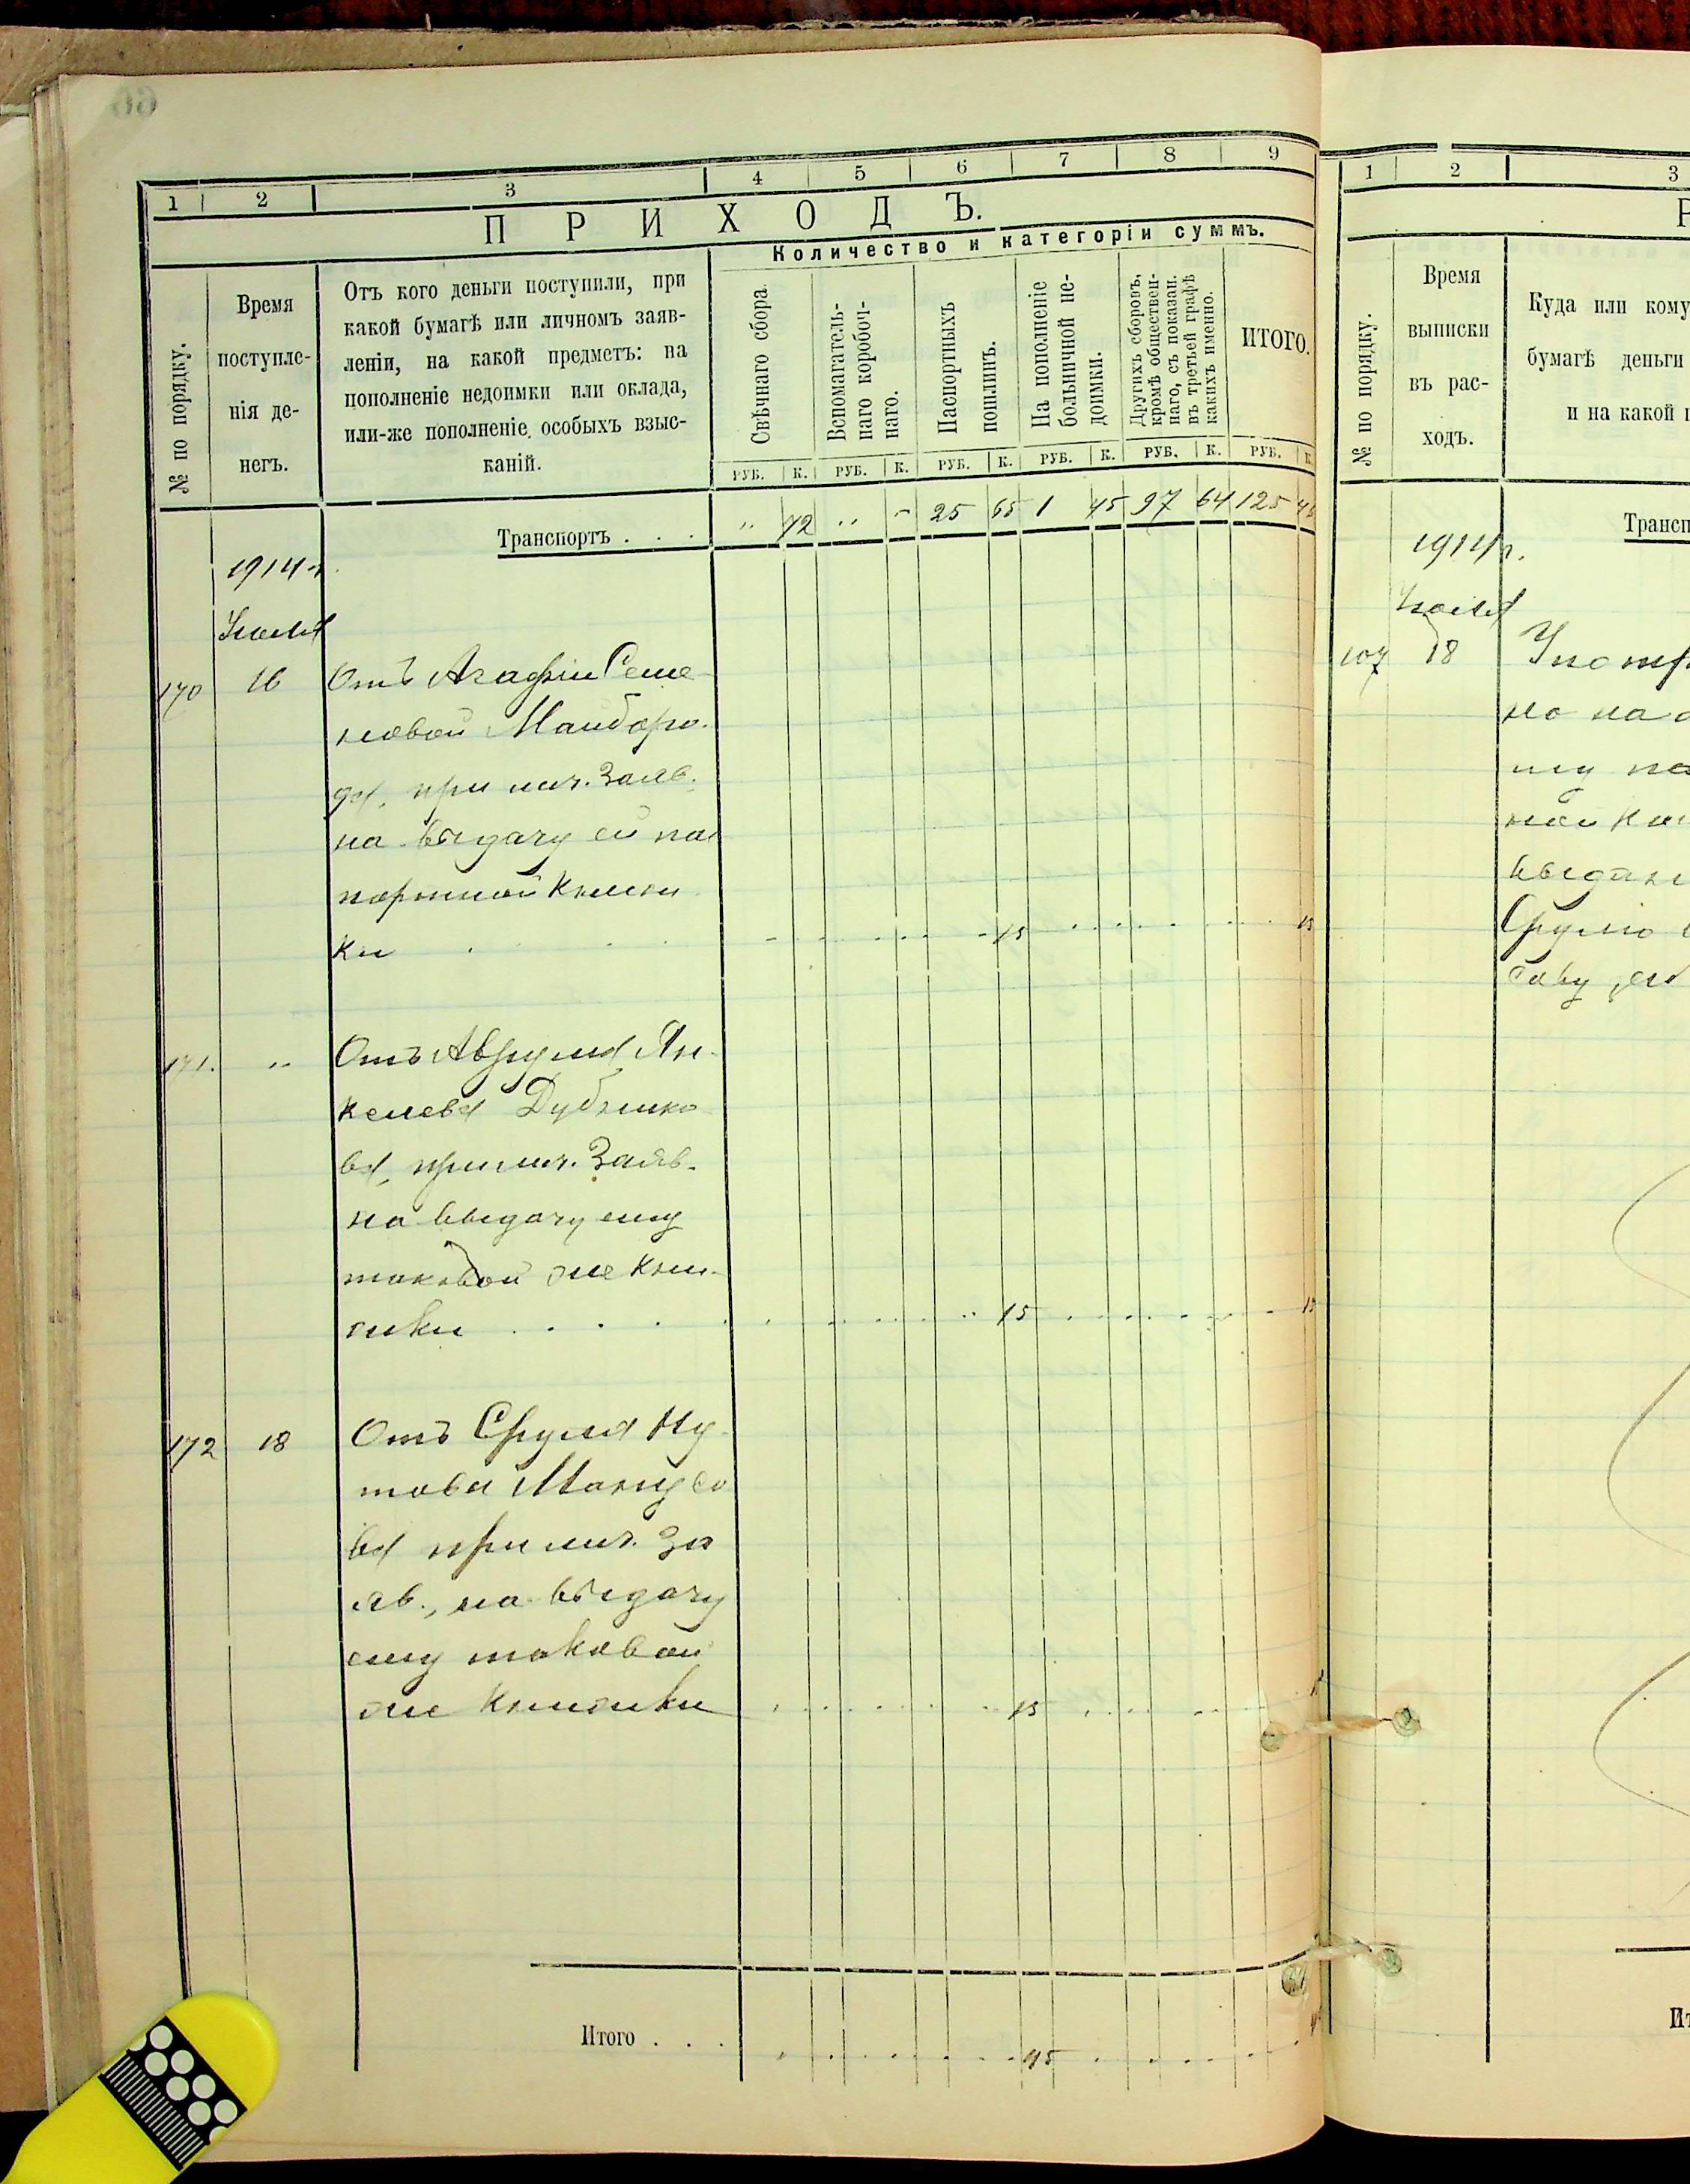 1 2 3 4 5 6 7 8 9
ПРИХОДЪ.
Количество и категоріи суммъ.
№ по порядку.
Время
поступле-
нія де-
негъ.
Отъ кого деньги поступили, при
какой бумагѣ или личномъ заяв-
леніи, на какой предметъ: на
пополненіе недоимки или оклада,
или-же пополненіе особыхъ взыс-
каній.
Свѣчнаго сбора.
Вспомагатель-
наго коробоч-
наго.
Паспортныхъ
пошлинъ.
На пополненіе
больничной не-
доимки.
Другихъ сборовъ,
кромѣ обществен-
наго, съ показан.
въ третьей графѣ
какихъ именно.
ИТОГО.
РУБ. К. РУБ. К. РУБ. К. РУБ. К. РУБ. К. РУБ. К
Транспортъ . . . " 72 " - 25 65 1 45 97 64 125 46
1914 г.
Іюля
170 16 Отъ Агафіи Семе-
новой Майборо-
дя, при лич. Заяв.
на выдачу ей пас
портной Книж
ки 15 15
171. " Отъ Аврумя Ян-
келевя Дубинко
вя, при лич. Заяв.
на выдачу ему
таковой же Кни-
жки . . . . 15 15
172 18 Отъ Срумя Ну
това Манусо
вя при лич. За
яв., на выдачу
ему таковой
же Книжки 15
Итого . . . 45
1 2 3
Р
№ по порядку.
Время
выписки
въ рас-
ходъ.
Куда или кому
бумагѣ деньги
и на какой
Трансп
1914 г.
Іюля
107 18 Употр
но на
му па
ной Кни
выдан
Срумю
сову, ея
Ит